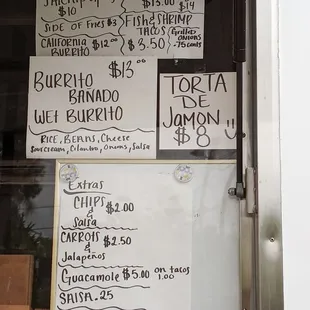 $10
SIDE OF FRIES $3
CALIFORNIA $12.00
BURRITO
$13.00
$14
FISH & SHRIMP
TACOS Grilled
$3.50 ONIONS
.75 cents
BURRITO $13.00
BAÑADO
WET BURRITO
RICE, BEANS, Cheese
Sour cream, Cilantro, Onions, Salsa
TORTA
DE
JAMON
$8
Extras
CHIPS
& $2.00
Salsa
CARROTS
& $2.50
Jalapeños
Guacamole $5.00 on tacos
1.00
SALSA .25